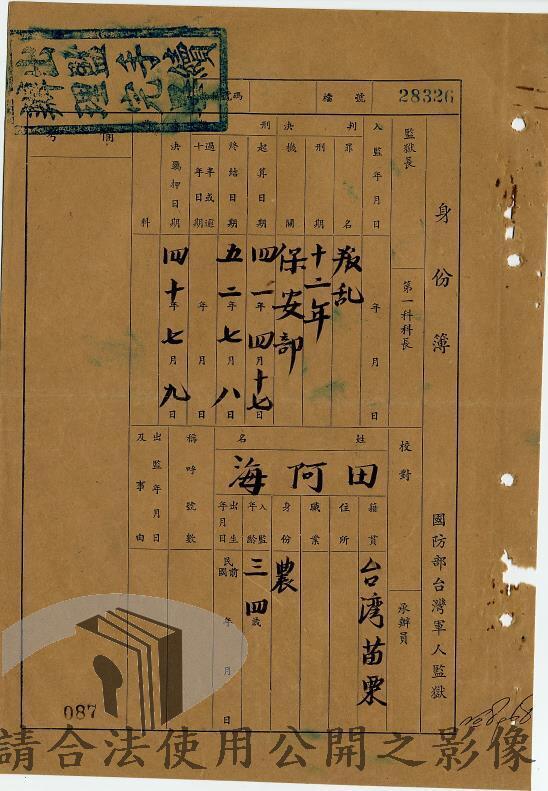 出監手續
辦理完畢
檔號
28326
身份簿
國防部台灣軍人監獄
監獄長
第一科科長
校對
承辦員
入監年月日
年 月 日
判決
罪名
叛乱
刑期
十二年
機關
保安部
刑
起算日期
四一年四月十七日
終結日期
五二年七月八日
過半或逾十年日期
年 月 日
決羈押日期
四十年七月九日
科
姓名
田阿海
籍貫
台湾苗栗
住所
職業
身份
農
入監年齡
三四歲
出生年月日
民前國 年 月 日
稱呼號數
出監年月日
及事由
087
請合法使用公開之影像